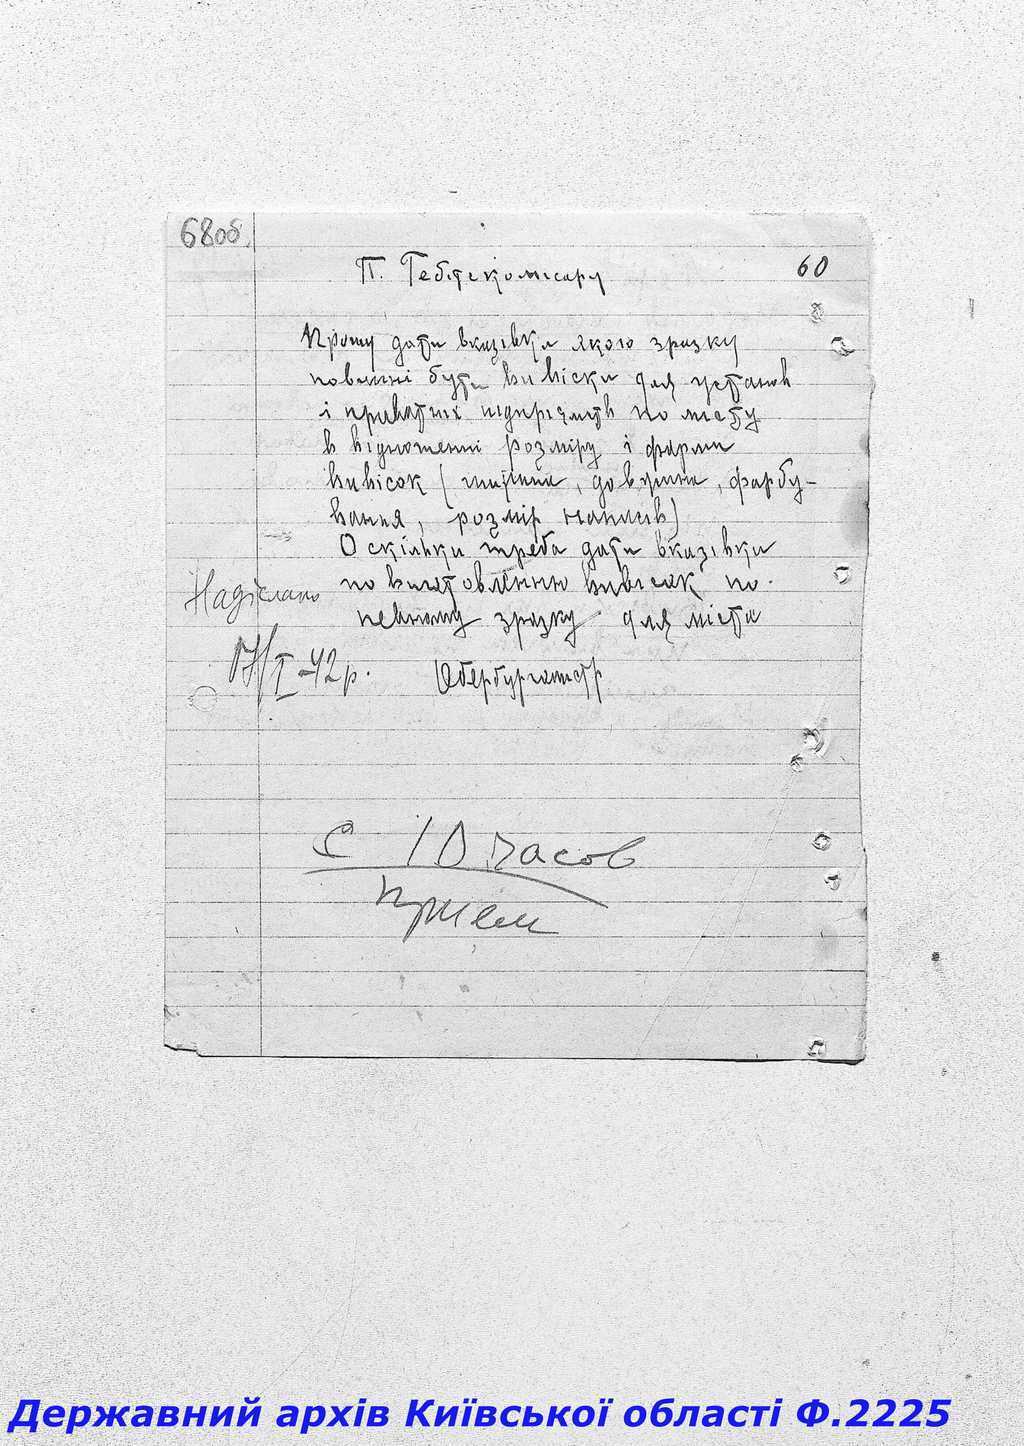 68об.
60
П. Гебітскомісару
Прошу дати вказівки якого зразку
повинні бути вивіски для установ
і приватних підприємств по місту
в відношенні розміру і форми
вивісок (ширина, довжина, фарбу-
вання, розмір написів)
Оскільки треба дати вказівки
по виготовленню вивісок по
певному зразку для міста
Надіслано
17/I-42р.
Обербургомістр
С 10 часов
прием
Державний архів Київської області Ф.2225